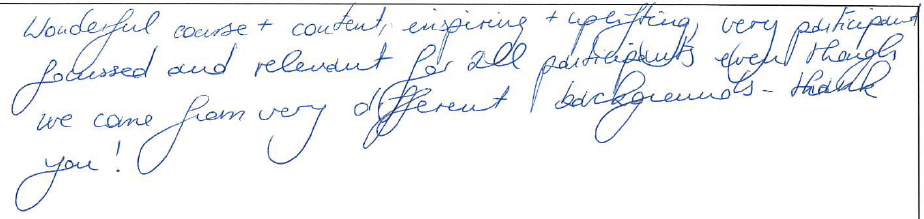 Wonderful course + content, inspiring + uplifting, very participant
focussed and relevant for all participants even though
we came from very different backgrounds - thank
you!